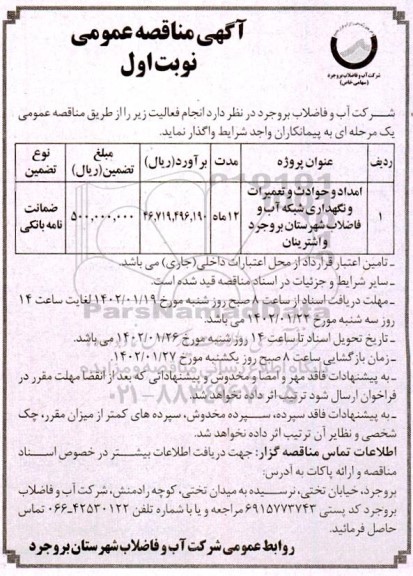 آگهی مناقصه عمومی
نوبت اول
شرکت آب و فاضلاب بروجرد
(سهامی خاص)
شـرکت آب و فاضلاب بروجرد در نظر دارد انجام فعالیت زیر را از طریق مناقصه عمومی
یک مرحله ای به پیمانکاران واجد شرایط واگذار نماید.
ردیف عنوان پروژه مدت برآورد(ریال) مبلغ تضمین(ریال) نوع تضمین
۱ امداد و حوادث و تعمیرات و نگهداری شبکه آب و فاضلاب شهرستان بروجرد و اشترینان ۱۲ماه ۴۶,۷۱۹,۴۹۶,۱۹۰ ۵۰۰,۰۰۰,۰۰۰ ضمانت نامه بانکی
ـ تامین اعتبار قرارداد از محل اعتبارات داخلی(جاری) می باشد.
ـ سایر شرایط و جزئیات در اسناد مناقصه قید شده است.
ـ مهلت دریافت اسناد از ساعت ۸ صبح روز شنبه مورخ ۱۴۰۲/۰۱/۱۹ لغایت ساعت ۱۴
روز سه شنبه مورخ ۱۴۰۲/۰۱/۲۲ می باشد.
ـ تاریخ تحویل اسناد تا ساعت ۱۴ روز شنبه مورخ ۱۴۰۲/۰۱/۲۶ می باشد.
ـ زمان بازگشایی ساعت ۸ صبح روز یکشنبه مورخ ۱۴۰۲/۰۱/۲۷
ـ به پیشنهادات فاقد مهر و امضا و مخدوش و پیشنهاداتی که بعد از انقضا مهلت مقرر در
فراخوان ارسال شود ترتیب اثر داده نخواهد شد.
ـ به پیشنهادات فاقد سپرده، سـپرده مخدوش، سپرده های کمتر از میزان مقرر، چک
شخصی و نظایر آن ترتیب اثر داده نخواهد شد.
اطلاعات تماس مناقصه گزار: جهت دریافت اطلاعات بیشتر در خصوص اسناد
مناقصه و ارائه پاکات به آدرس:
بروجرد، خیابان تختی، نرسیده به میدان تختی، کوچه رادمنش، شرکت آب و فاضلاب
بروجرد کد پستی ۶۹۱۵۷۷۳۷۴۳ مراجعه و یا با شماره تلفن ۴۲۵۳۰۱۲۲-۰۶۶ تماس
حاصل فرمائید.
روابط عمومی شرکت آب و فاضلاب شهرستان بروجرد